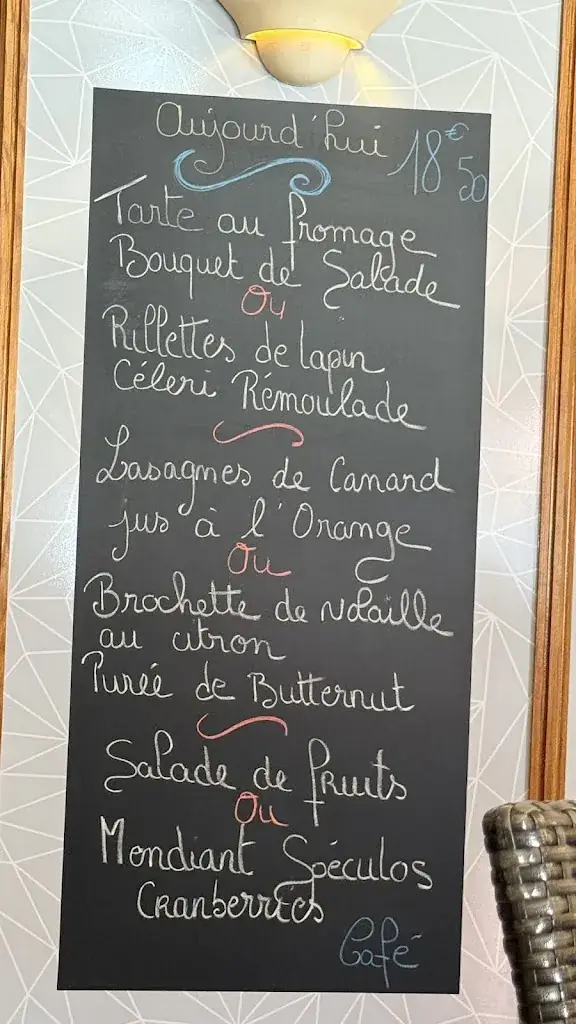 Aujourd'hui 18€50
Tarte au fromage
Bouquet de Salade
Ou
Rillettes de lapin
Céleri Rémoulade
Lasagnes de Canard
jus à l'Orange
Ou
Brochette de volaille
au citron
Purée de Butternut
Salade de fruits
Ou
Mendiant Spéculos
Cranberries
Café